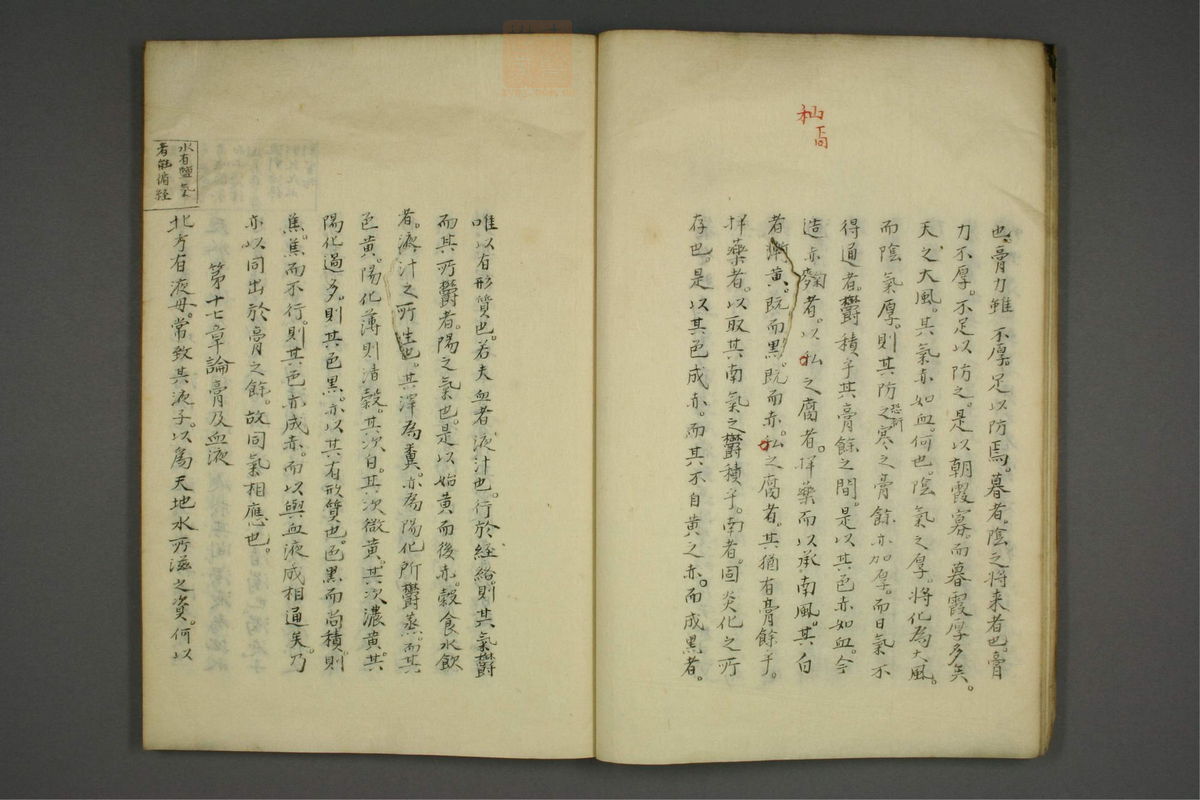 秈
高
也。膏力雖不厚。足以防焉。暮者。陰之将来者也。膏
力不厚。不足以防之。是以朝霞寡。而暮霞厚多矣。
天之大風。其氣赤如血。何也。陰氣之厚。将化為大風。
而陰氣厚。則其防之寒之膏餘亦加厚。而日氣不
得通者。欝積乎其膏餘之間。是以其色赤如血。今
造赤麹者。以私之腐者。拌藥而以承南風。其白
者漸黄。既而黒。既而赤。私之腐者。其猶有膏餘乎。
拌藥者。以取其南氣之欝積乎。南者。同炎化之所
存也。是以其色成赤。而其不自黄之赤。而成黒者。
唯以有形質也。若夫血者液汁也。行於経絡。則其氣欝
而其所欝者。陽之氣也。是以始黄而後赤。穀食水飲
者。液汁之所生也。其滓為糞。亦為陽化所欝蒸。而其
色黄。陽化薄則清穀。其次白。其次微黄。其次濃黄。其
陽化過多。則其色黒。亦以其有形質也。色黒而尚積。則
焦。焦而不行。則其色亦成赤。而以與血液成相通矣。乃
亦以同出於膏之餘。故同氣相應也。
第十七章論膏及血液
水有鹽氣
者能循経
北方有液母。常致其液子。以為天地水所滋之資。何以